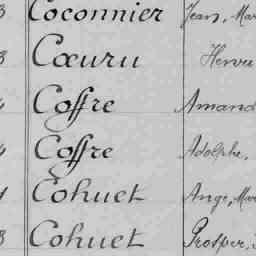 Coconnier Jean, Mar
Cœuru Hervé
Coffre Amand
Coffre Adolphe,
Cohuet Ange, Mar
Cohuet Prosper,